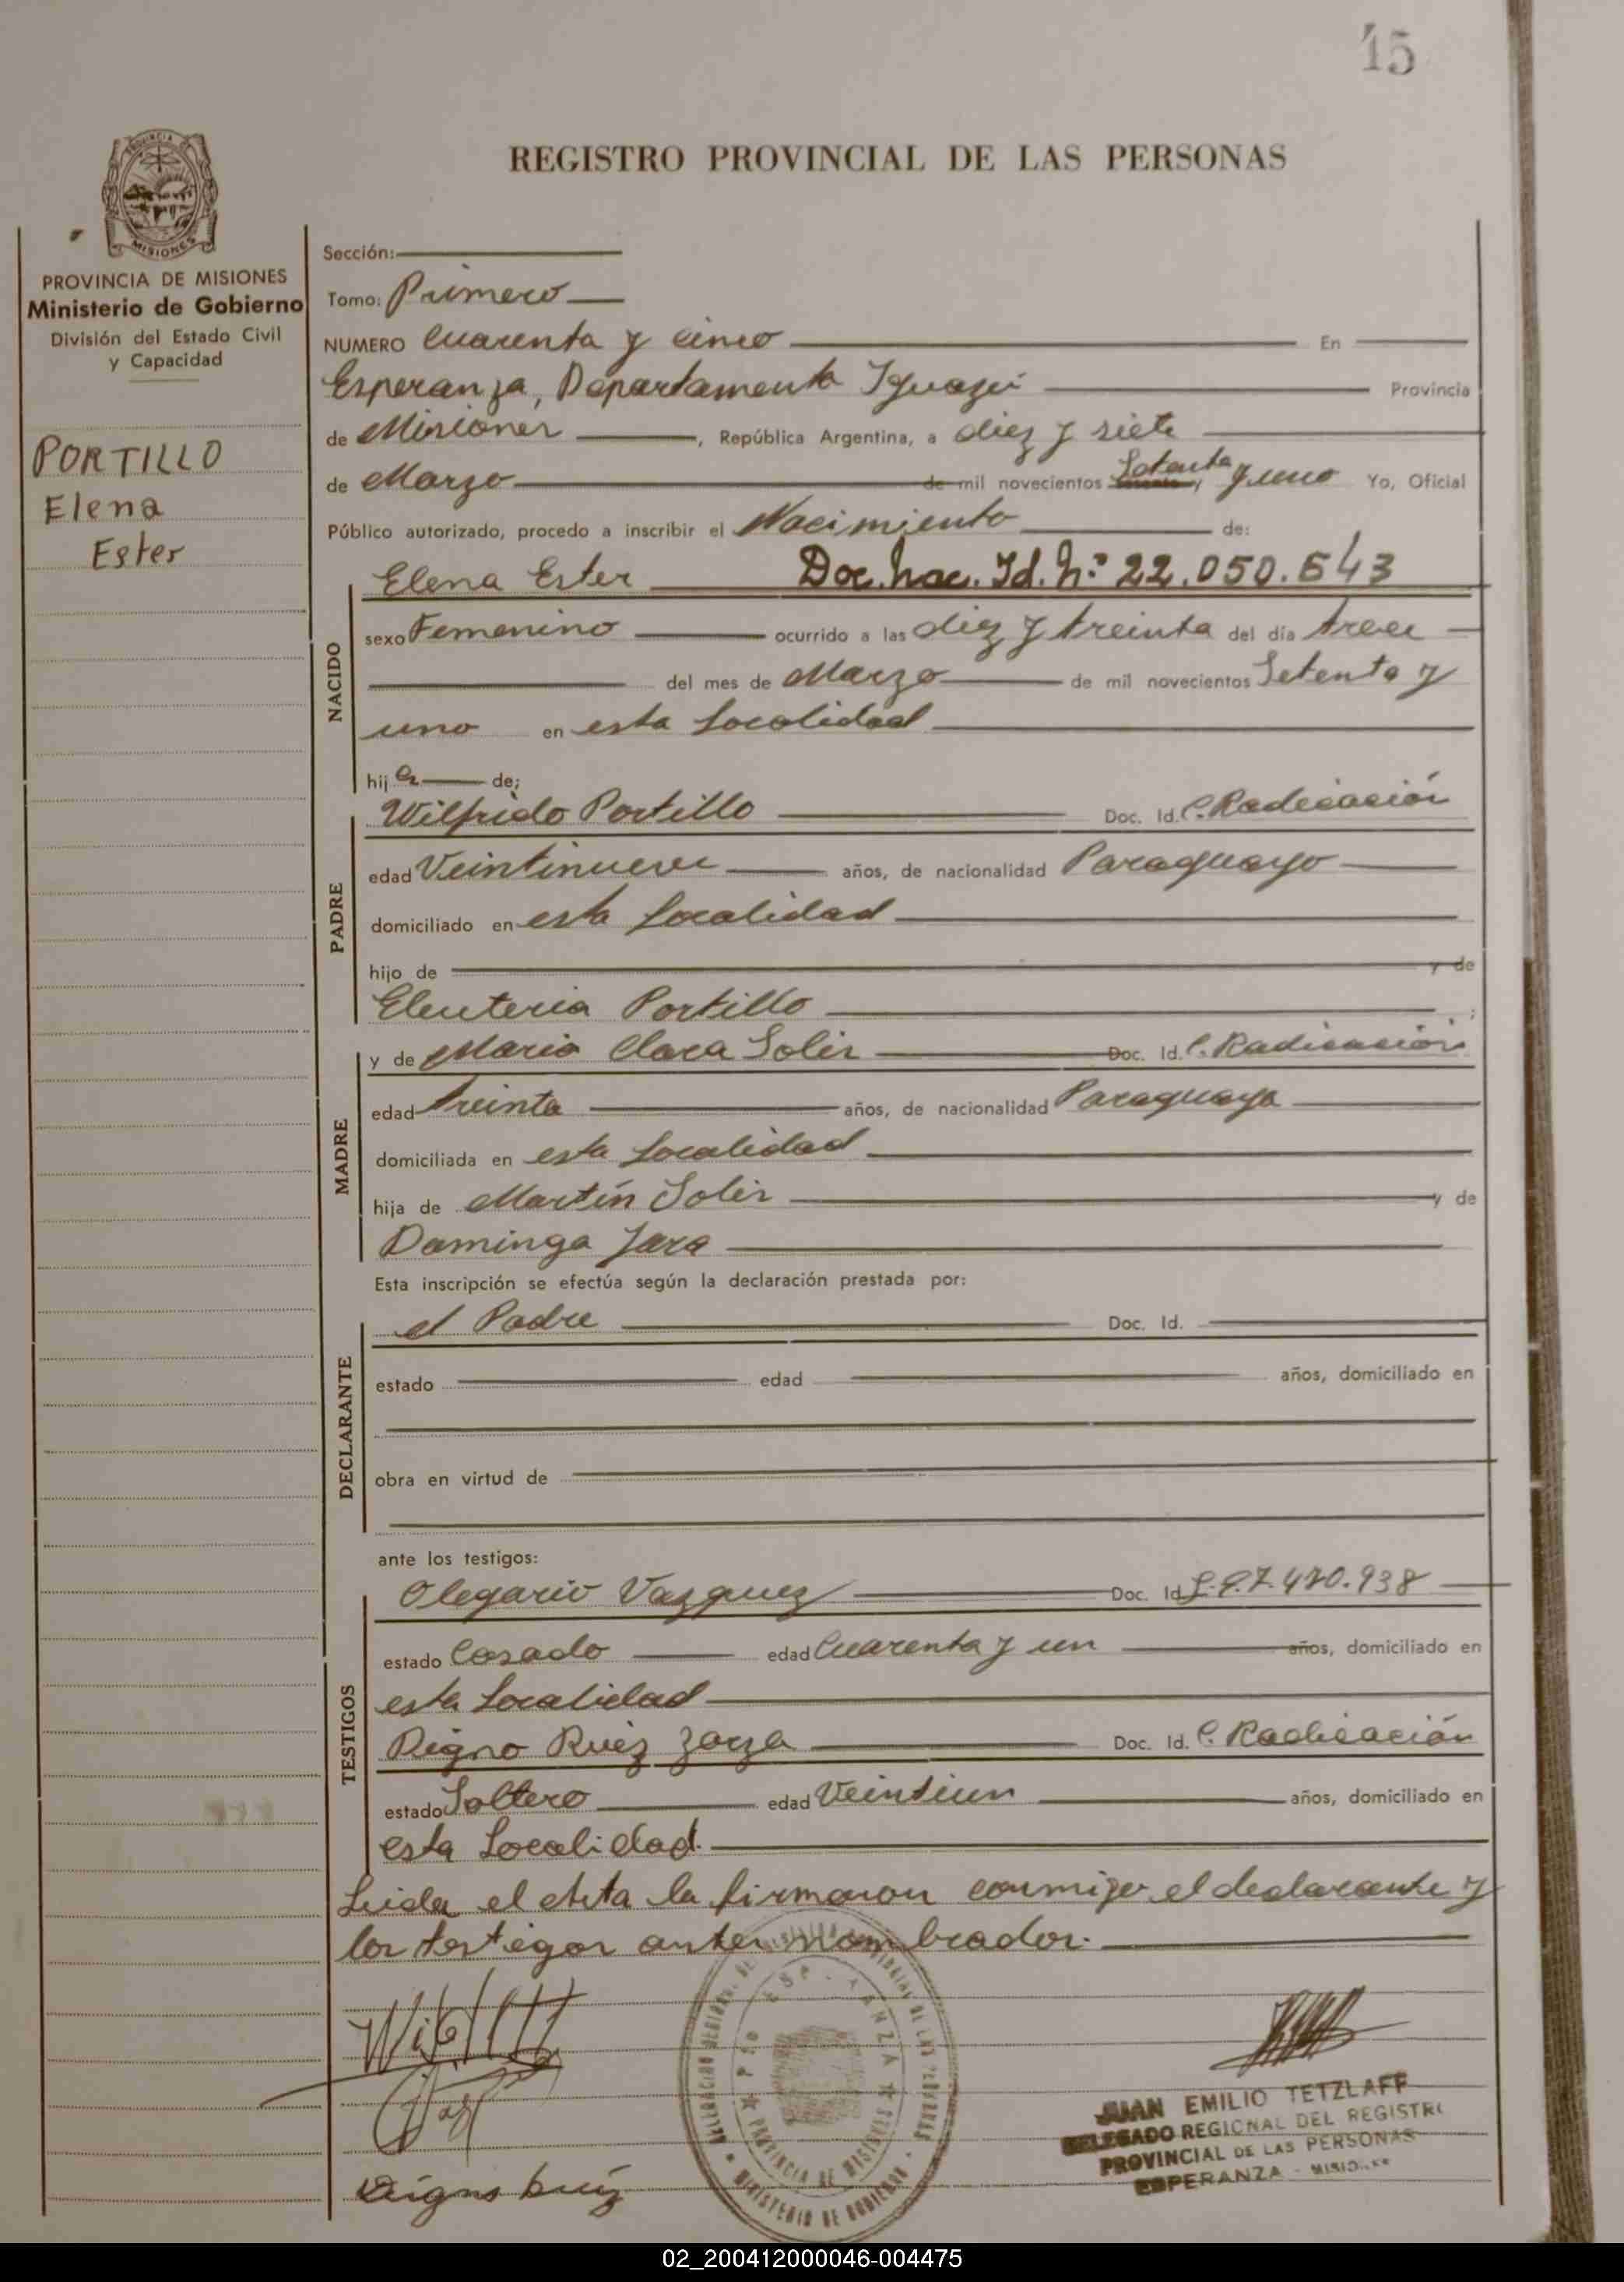 15
REGISTRO PROVINCIAL DE LAS PERSONAS
PROVINCIA DE MISIONES
Ministerio de Gobierno
División del Estado Civil
y Capacidad
PORTILLO
Elena
Ester
Sección:
Tomo: Primero
NUMERO Cuarenta y cinco En
Esperanza, Departamento Iguazú Provincia
de Misiones, República Argentina, a diez y siete
de Marzo de mil novecientos Setenta y uno Yo, Oficial
Público autorizado, procedo a inscribir el Nacimiento de:
Elena Ester Doc. Nac. Id. Nº 22.050.643
NACIDO
sexo Femenino ocurrido a las diez y treinta del día trece
del mes de Marzo de mil novecientos Setenta y
uno en esta Localidad
hija de;
PADRE
Wilfrido Portillo Doc. Id. C. Radicación
edad Veintinueve años, de nacionalidad Paraguayo
domiciliado en esta Localidad
hijo de y de
Eleuteria Portillo ;
MADRE
y de Maria Clara Solis Doc. Id. C. Radicación
edad treinta años, de nacionalidad Paraguaya
domiciliada en esta Localidad
hija de Martín Solis y de
Dominga Jara
Esta inscripción se efectúa según la declaración prestada por:
DECLARANTE
el Padre Doc. Id.
estado edad años, domiciliado en
obra en virtud de
ante los testigos:
TESTIGOS
Olegario Vazquez Doc. Id 7.470.938
estado Casado edad Cuarenta y un años, domiciliado en
esta Localidad
Digno Ruiz Zarza Doc. Id. C. Radicación
estado Soltero edad Veintiun años, domiciliado en
esta Localidad.
Leida el Acta la firmaron conmigo el declarante y
los testigos antes nombrados.
Digno Ruiz
PROVINCIA DE MISIONES
MINISTERIO DE GOBIERNO
JUAN EMILIO TETZLAFF
DELEGADO REGIONAL DEL REGISTRO
PROVINCIAL DE LAS PERSONAS
ESPERANZA - MISIONES
02_200412000046-004475